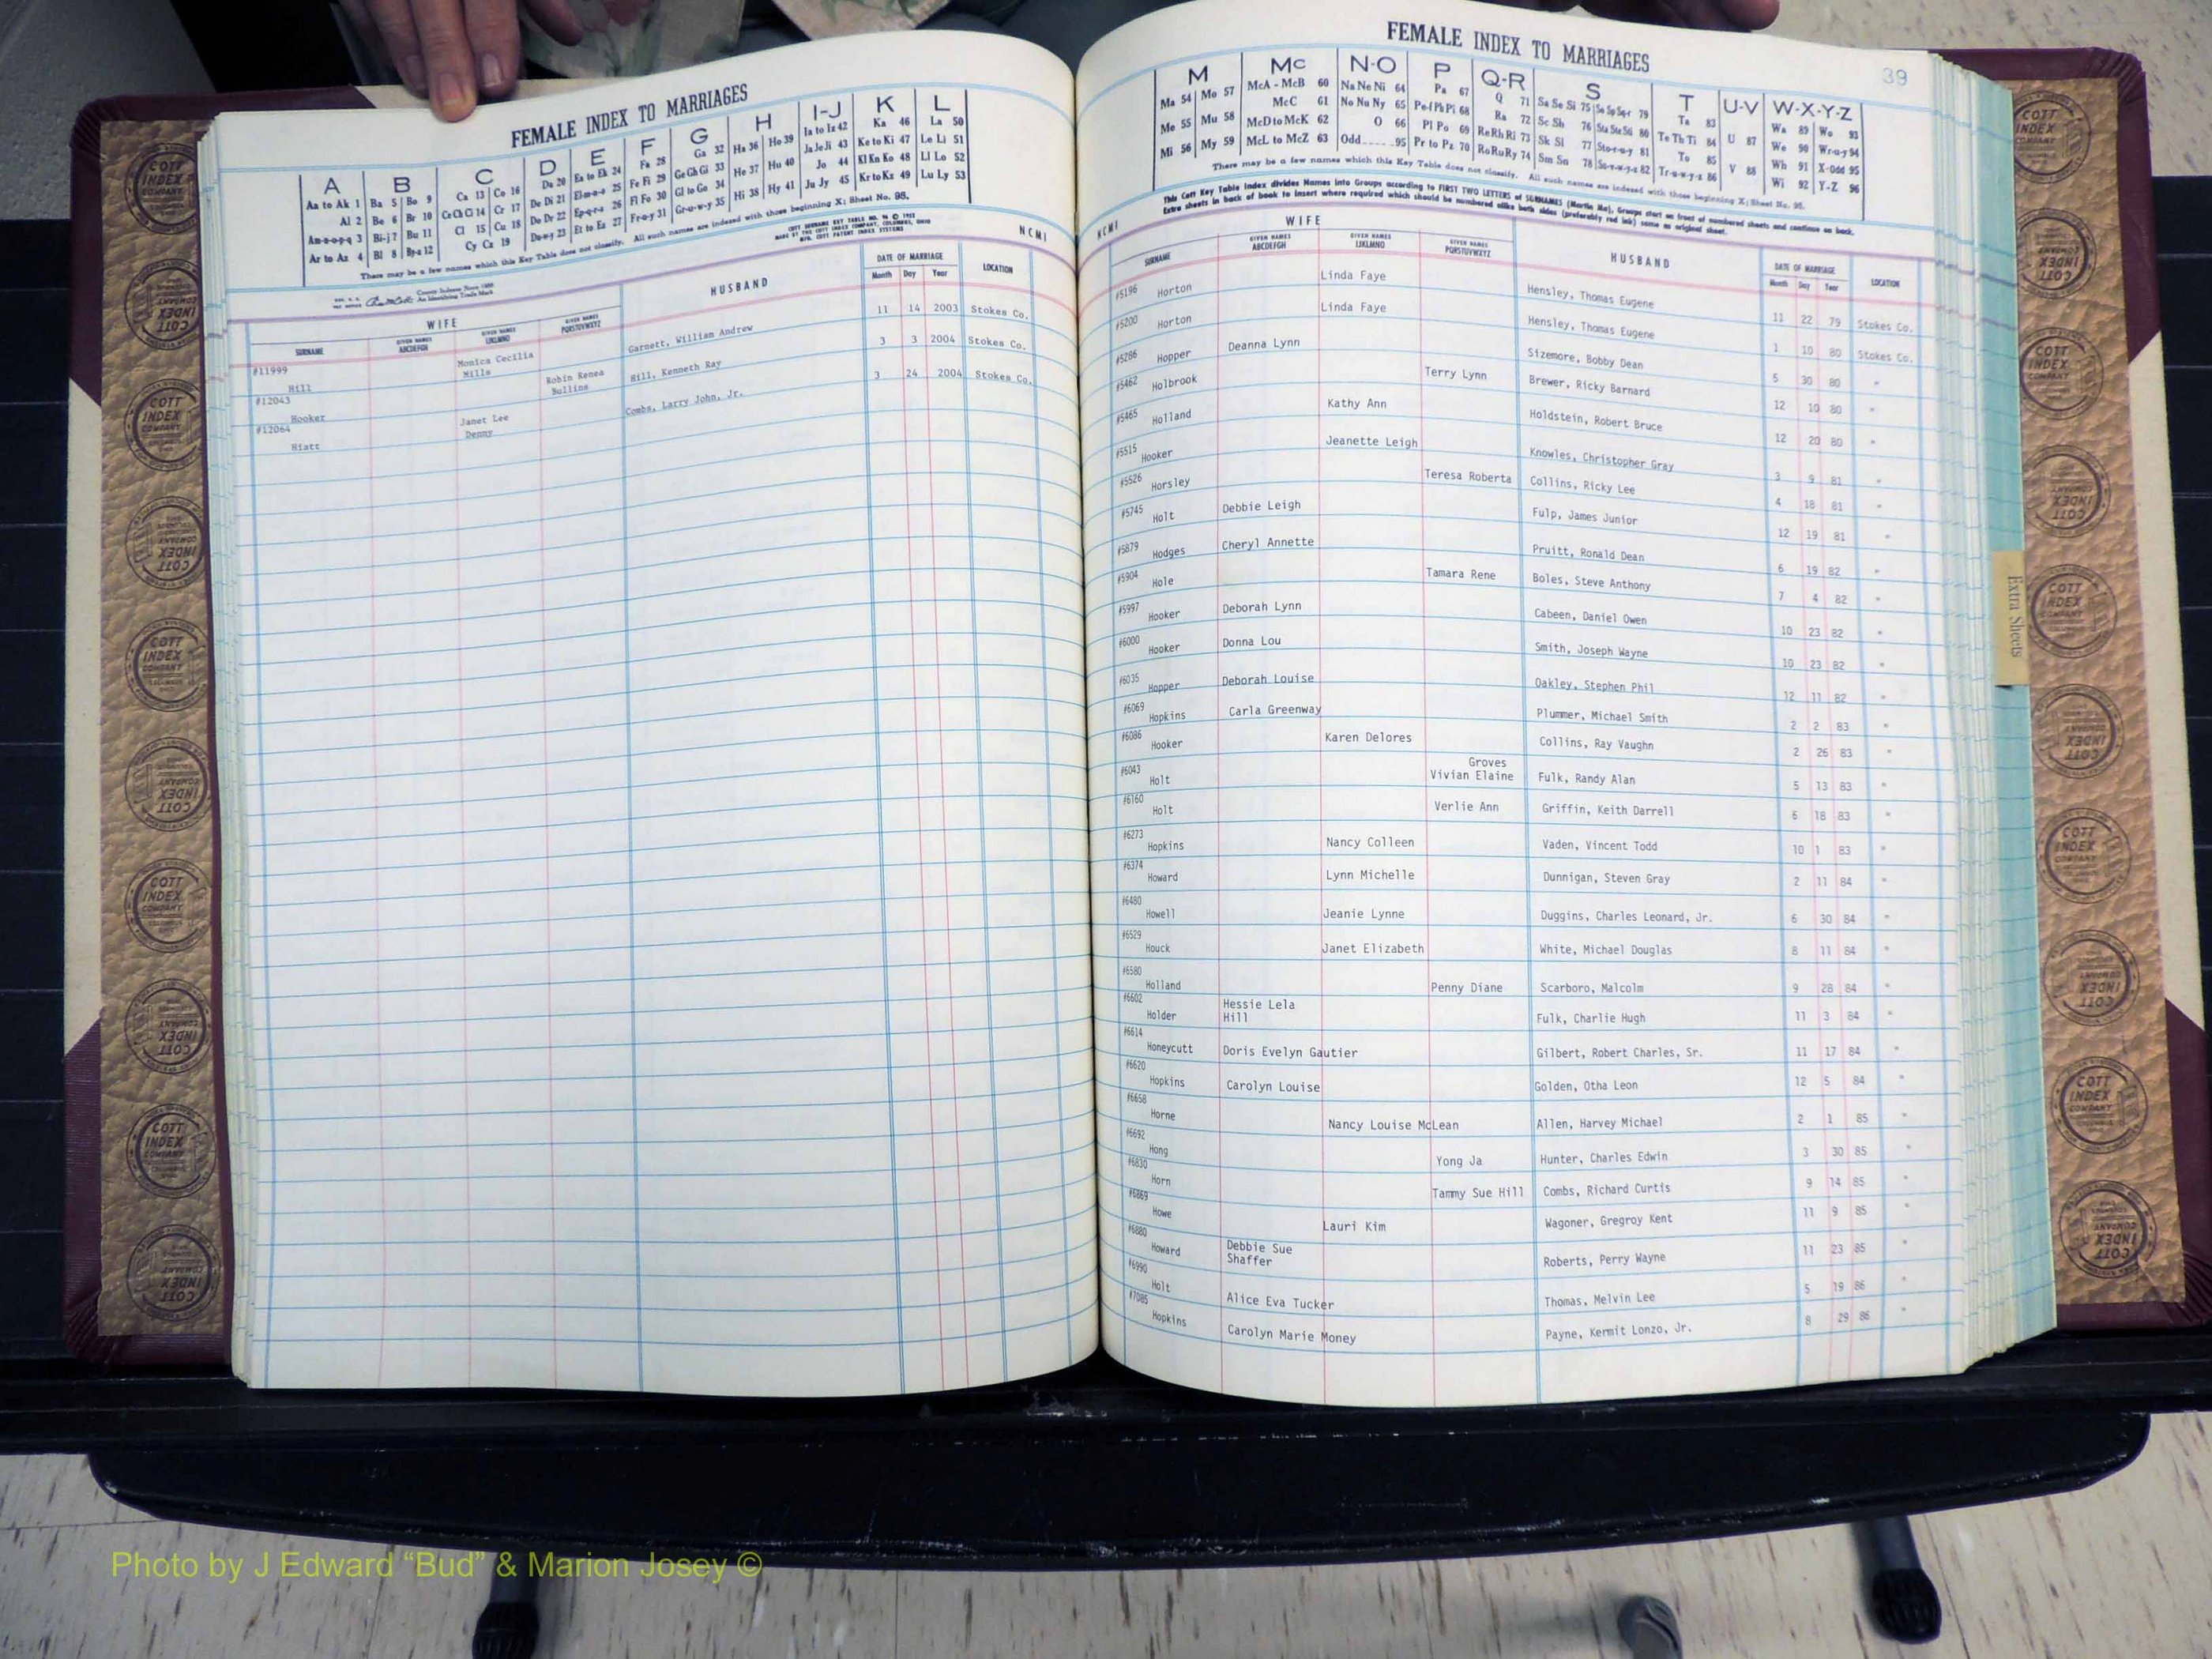 FEMALE INDEX TO MARRIAGES
A B C D E F G H I-J K L
Aa to Ak 1 Ba 5 Bo 9 Ca 13 Co 16 Da 20 Ea to Ek 24 Fa 28 Ga 32 Ha 36 Ho 39 Ia to Iz 42 Ka 46 La 50
Al 2 Be 6 Br 10 Ce Ch Ci 14 Cr 17 De Di 21 El-m-n-o 25 Fe Fi 29 Ge Gh Gi 33 He 37 Hu 40 Ja Je Ji 43 Ke to Ki 47 Le Li 51
Am-n-o-p-q 3 Bi-j 7 Bu 11 Cl 15 Cu 18 Do Dr 22 Ep-q-r-s 26 Fl Fo 30 Gl to Go 34 Hi 38 Hy 41 Jo 44 Kl Kn Ko 48 Ll Lo 52
Ar to Az 4 Bl 8 By-z 12 Cy Cz 19 Du-w-y 23 Et to Ez 27 Fr-u-y 31 Gr-u-w-y 35 Ju Jy 45 Kr to Kz 49 Lu Ly 53
There may be a few names which this Key Table does not classify. All such names are indexed with those beginning X; Sheet No. 95.
NCMI
WIFE HUSBAND DATE OF MARRIAGE LOCATION
SURNAME GIVEN NAMES ABCDEFGH GIVEN NAMES IJKLMNO GIVEN NAMES PQRSTUVWXYZ Month Day Year
#11999
Hill Monica Cecilia Mills Garnett, William Andrew 11 14 2003 Stokes Co.
#12043
Hooker Robin Renea Bullins Hill, Kenneth Ray 3 3 2004 Stokes Co.
#12064
Hiatt Janet Lee Denny Combs, Larry John, Jr. 3 24 2004 Stokes Co.
FEMALE INDEX TO MARRIAGES
39
M Mc N-O P Q-R S T U-V W-X-Y-Z
Ma 54 Mo 57 McA - McB 60 Na Ne Ni 64 Pa 67 Q 71 Sa Se Si 75 Sp Sq-r 79 Ta 83 Wa 89 Wo 93
Me 55 Mu 58 McC 61 No Nu Ny 65 Pe-f Ph Pi 68 Ra 72 Sc Sh 76 Sta Ste Sti 80 Te Th Ti 84 U 87 We 90 Wr-u-y 94
Mi 56 My 59 McD to McK 62 O 66 Pl Po 69 Re Rh Ri 73 Sk Sl 77 Sto-r-u-y 81 To 85 V 88 Wh 91 X-Odd 95
McL to McZ 63 Odd 95 Pr to Pz 70 Ro Ru Ry 74 Sm Sn 78 Su-v-w-y-z 82 Tr-u-w-y-z 86 Wi 92 Y-Z 96
There may be a few names which this Key Table does not classify. All such names are indexed with those beginning X; Sheet No. 95.
This Cott Key Table Index divides Names into Groups according to FIRST TWO LETTERS of SURNAMES (Martin Ma), Groups start on front of numbered sheets and continue on back.
Extra sheets in back of book to insert where required which should be numbered alike both sides (preferably red ink) same as original sheet.
NCMI
WIFE HUSBAND DATE OF MARRIAGE LOCATION
SURNAME GIVEN NAMES ABCDEFGH GIVEN NAMES IJKLMNO GIVEN NAMES PQRSTUVWXYZ Month Day Year
#5196 Horton Linda Faye Hensley, Thomas Eugene 11 22 79 Stokes Co.
#5200 Horton Linda Faye Hensley, Thomas Eugene 1 10 80 Stokes Co.
#5286 Hopper Deanna Lynn Sizemore, Bobby Dean 5 30 80 "
#5462 Holbrook Terry Lynn Brewer, Ricky Barnard 12 10 80 "
#5465 Holland Kathy Ann Holdstein, Robert Bruce 12 20 80 "
#5515 Hooker Jeanette Leigh Knowles, Christopher Gray 3 9 81 "
#5526 Horsley Teresa Roberta Collins, Ricky Lee 4 18 81 "
#5745 Holt Debbie Leigh Fulp, James Junior 12 19 81 "
#5879 Hodges Cheryl Annette Pruitt, Ronald Dean 6 19 82 "
#5904 Hole Tamara Rene Boles, Steve Anthony 7 4 82 "
#5997 Hooker Deborah Lynn Cabeen, Daniel Owen 10 23 82 "
#6000 Hooker Donna Lou Smith, Joseph Wayne 10 23 82 "
#6035 Hopper Deborah Louise Oakley, Stephen Phil 12 11 82 "
#6069 Hopkins Carla Greenway Plummer, Michael Smith 2 2 83 "
#6086 Hooker Karen Delores Collins, Ray Vaughn 2 26 83 "
#6043 Holt Groves Vivian Elaine Fulk, Randy Alan 5 13 83 "
#6160 Holt Verlie Ann Griffin, Keith Darrell 6 18 83 "
#6273 Hopkins Nancy Colleen Vaden, Vincent Todd 10 1 83 "
#6374 Howard Lynn Michelle Dunnigan, Steven Gray 2 11 84 "
#6480 Howell Jeanie Lynne Duggins, Charles Leonard, Jr. 6 30 84 "
#6529 Houck Janet Elizabeth White, Michael Douglas 8 11 84 "
#6580 Holland Penny Diane Scarboro, Malcolm 9 28 84 "
#6602 Holder Hessie Lela Hill Fulk, Charlie Hugh 11 3 84 "
#6614 Honeycutt Doris Evelyn Gautier Gilbert, Robert Charles, Sr. 11 17 84 "
#6620 Hopkins Carolyn Louise Golden, Otha Leon 12 5 84 "
#6658 Horne Nancy Louise McLean Allen, Harvey Michael 2 1 85 "
#6692 Hong Yong Ja Hunter, Charles Edwin 3 30 85 "
#6830 Horn Tammy Sue Hill Combs, Richard Curtis 9 14 85 "
#6869 Howe Lauri Kim Wagoner, Gregroy Kent 11 9 85 "
#6880 Howard Debbie Sue Shaffer Roberts, Perry Wayne 11 23 85 "
#6990 Holt Alice Eva Tucker Thomas, Melvin Lee 5 19 86 "
#7085 Hopkins Carolyn Marie Money Payne, Kermit Lonzo, Jr. 8 29 86 "
Extra Sheets
COTT INDEX COMPANY
Photo by J Edward “Bud” & Marion Josey ©